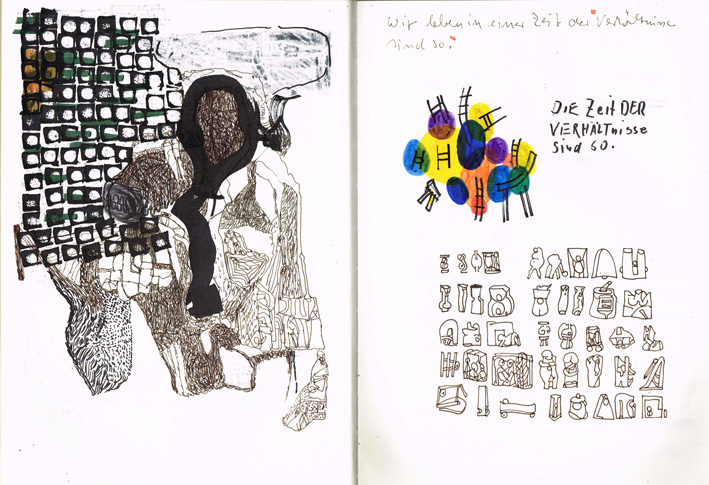 Wir leben in einer Zeit der Verhältnisse
sind so.
DIE Zeit DER
VERHÄLTNisse
Sind SO.